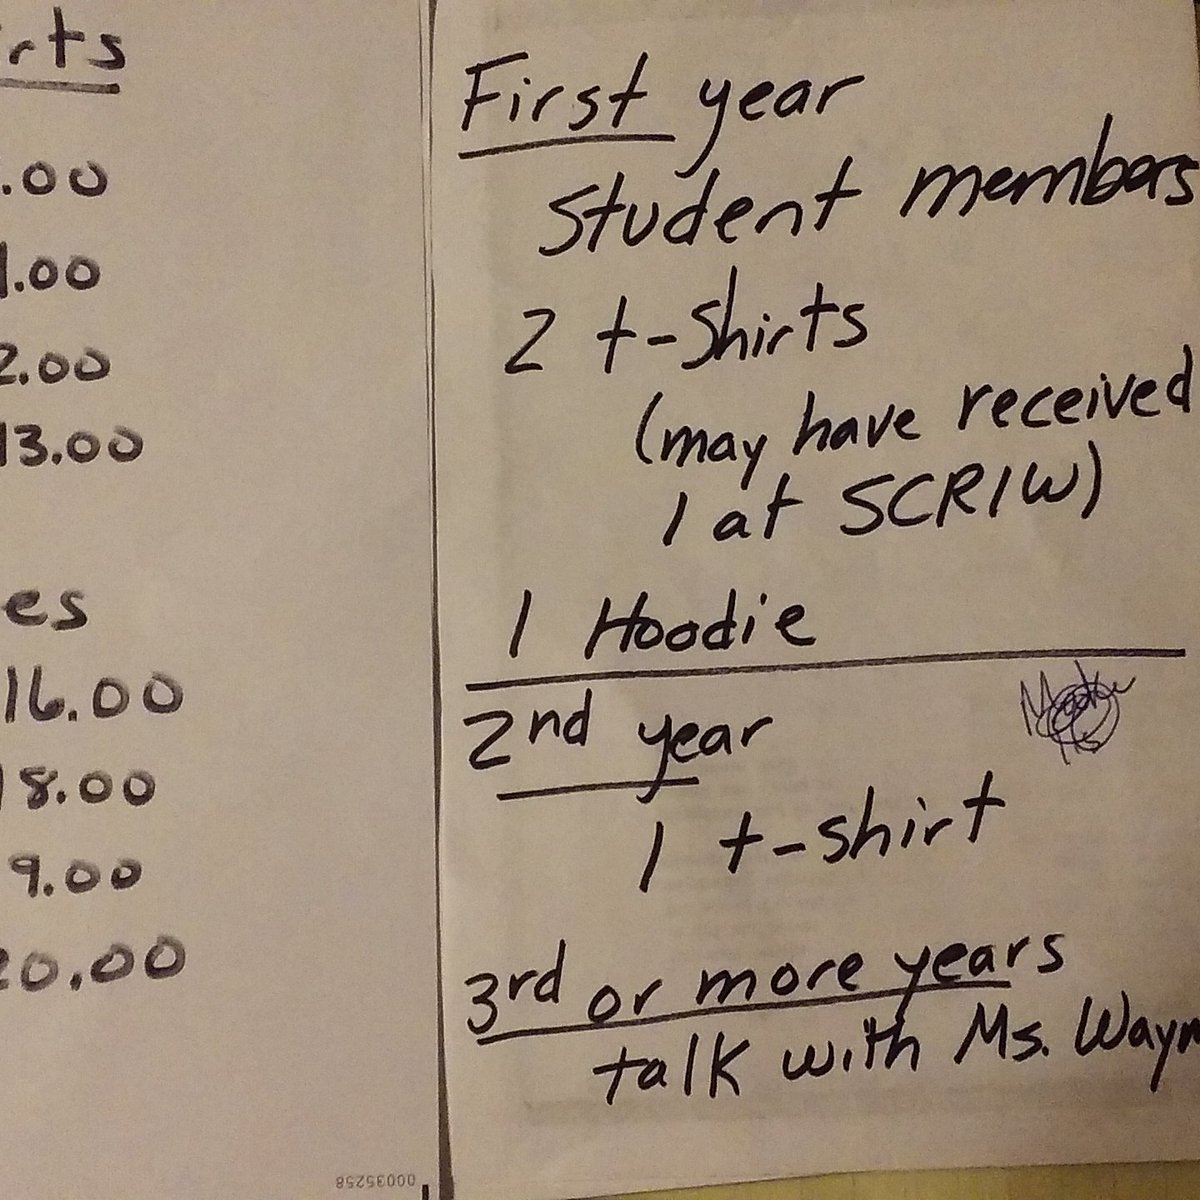 rts
.00
1.00
2.00
13.00
es
16.00
18.00
9.00
20.00
000352258
First year
student members
2 t-shirts
(may have received
1 at SCRIW)
1 Hoodie
2nd year
1 t-shirt
3rd or more years
talk with Ms. Wayn